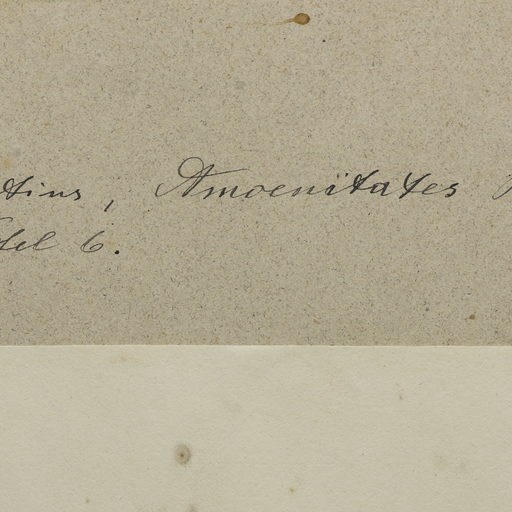 tius, Amoenitates
fel 6.